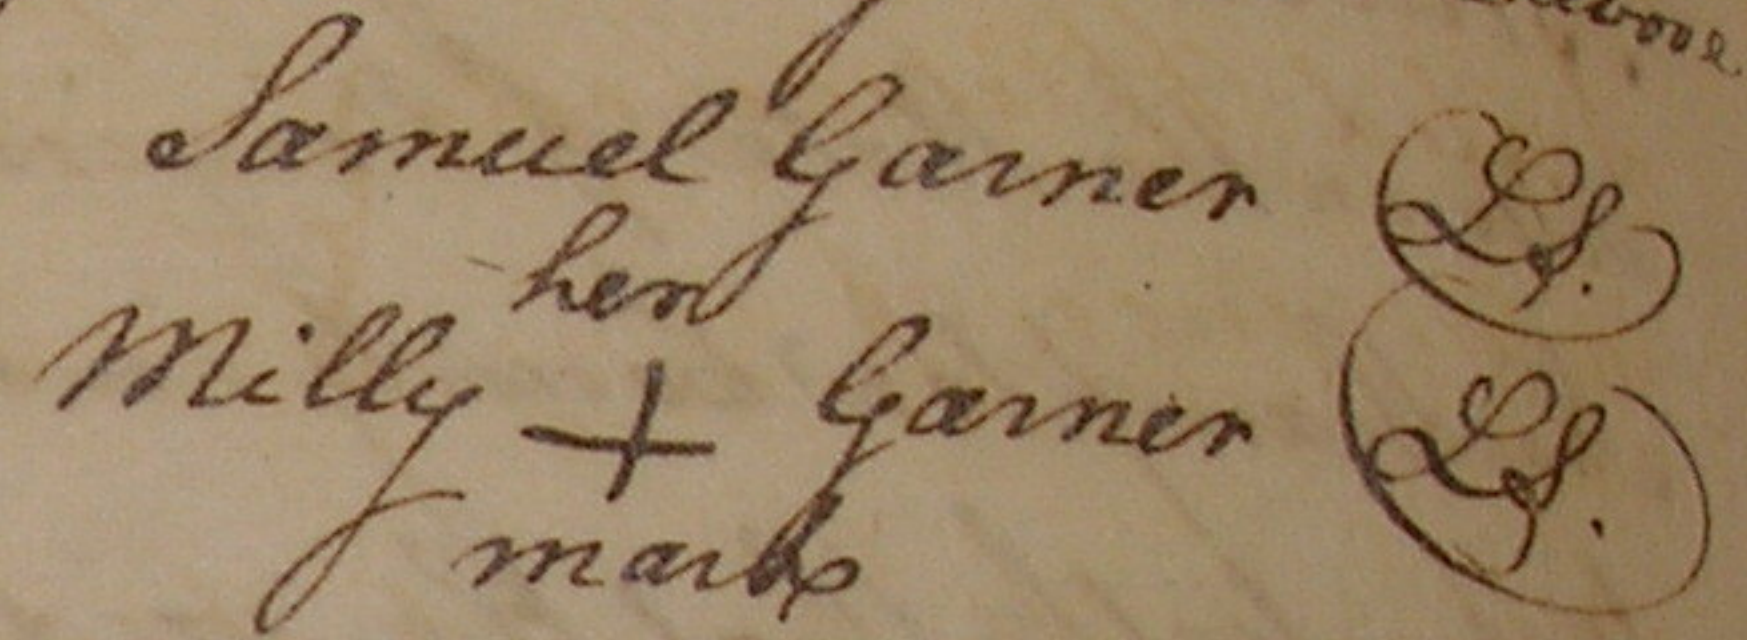 Samuel Garner LS.
her
Milly + Garner LS.
mark